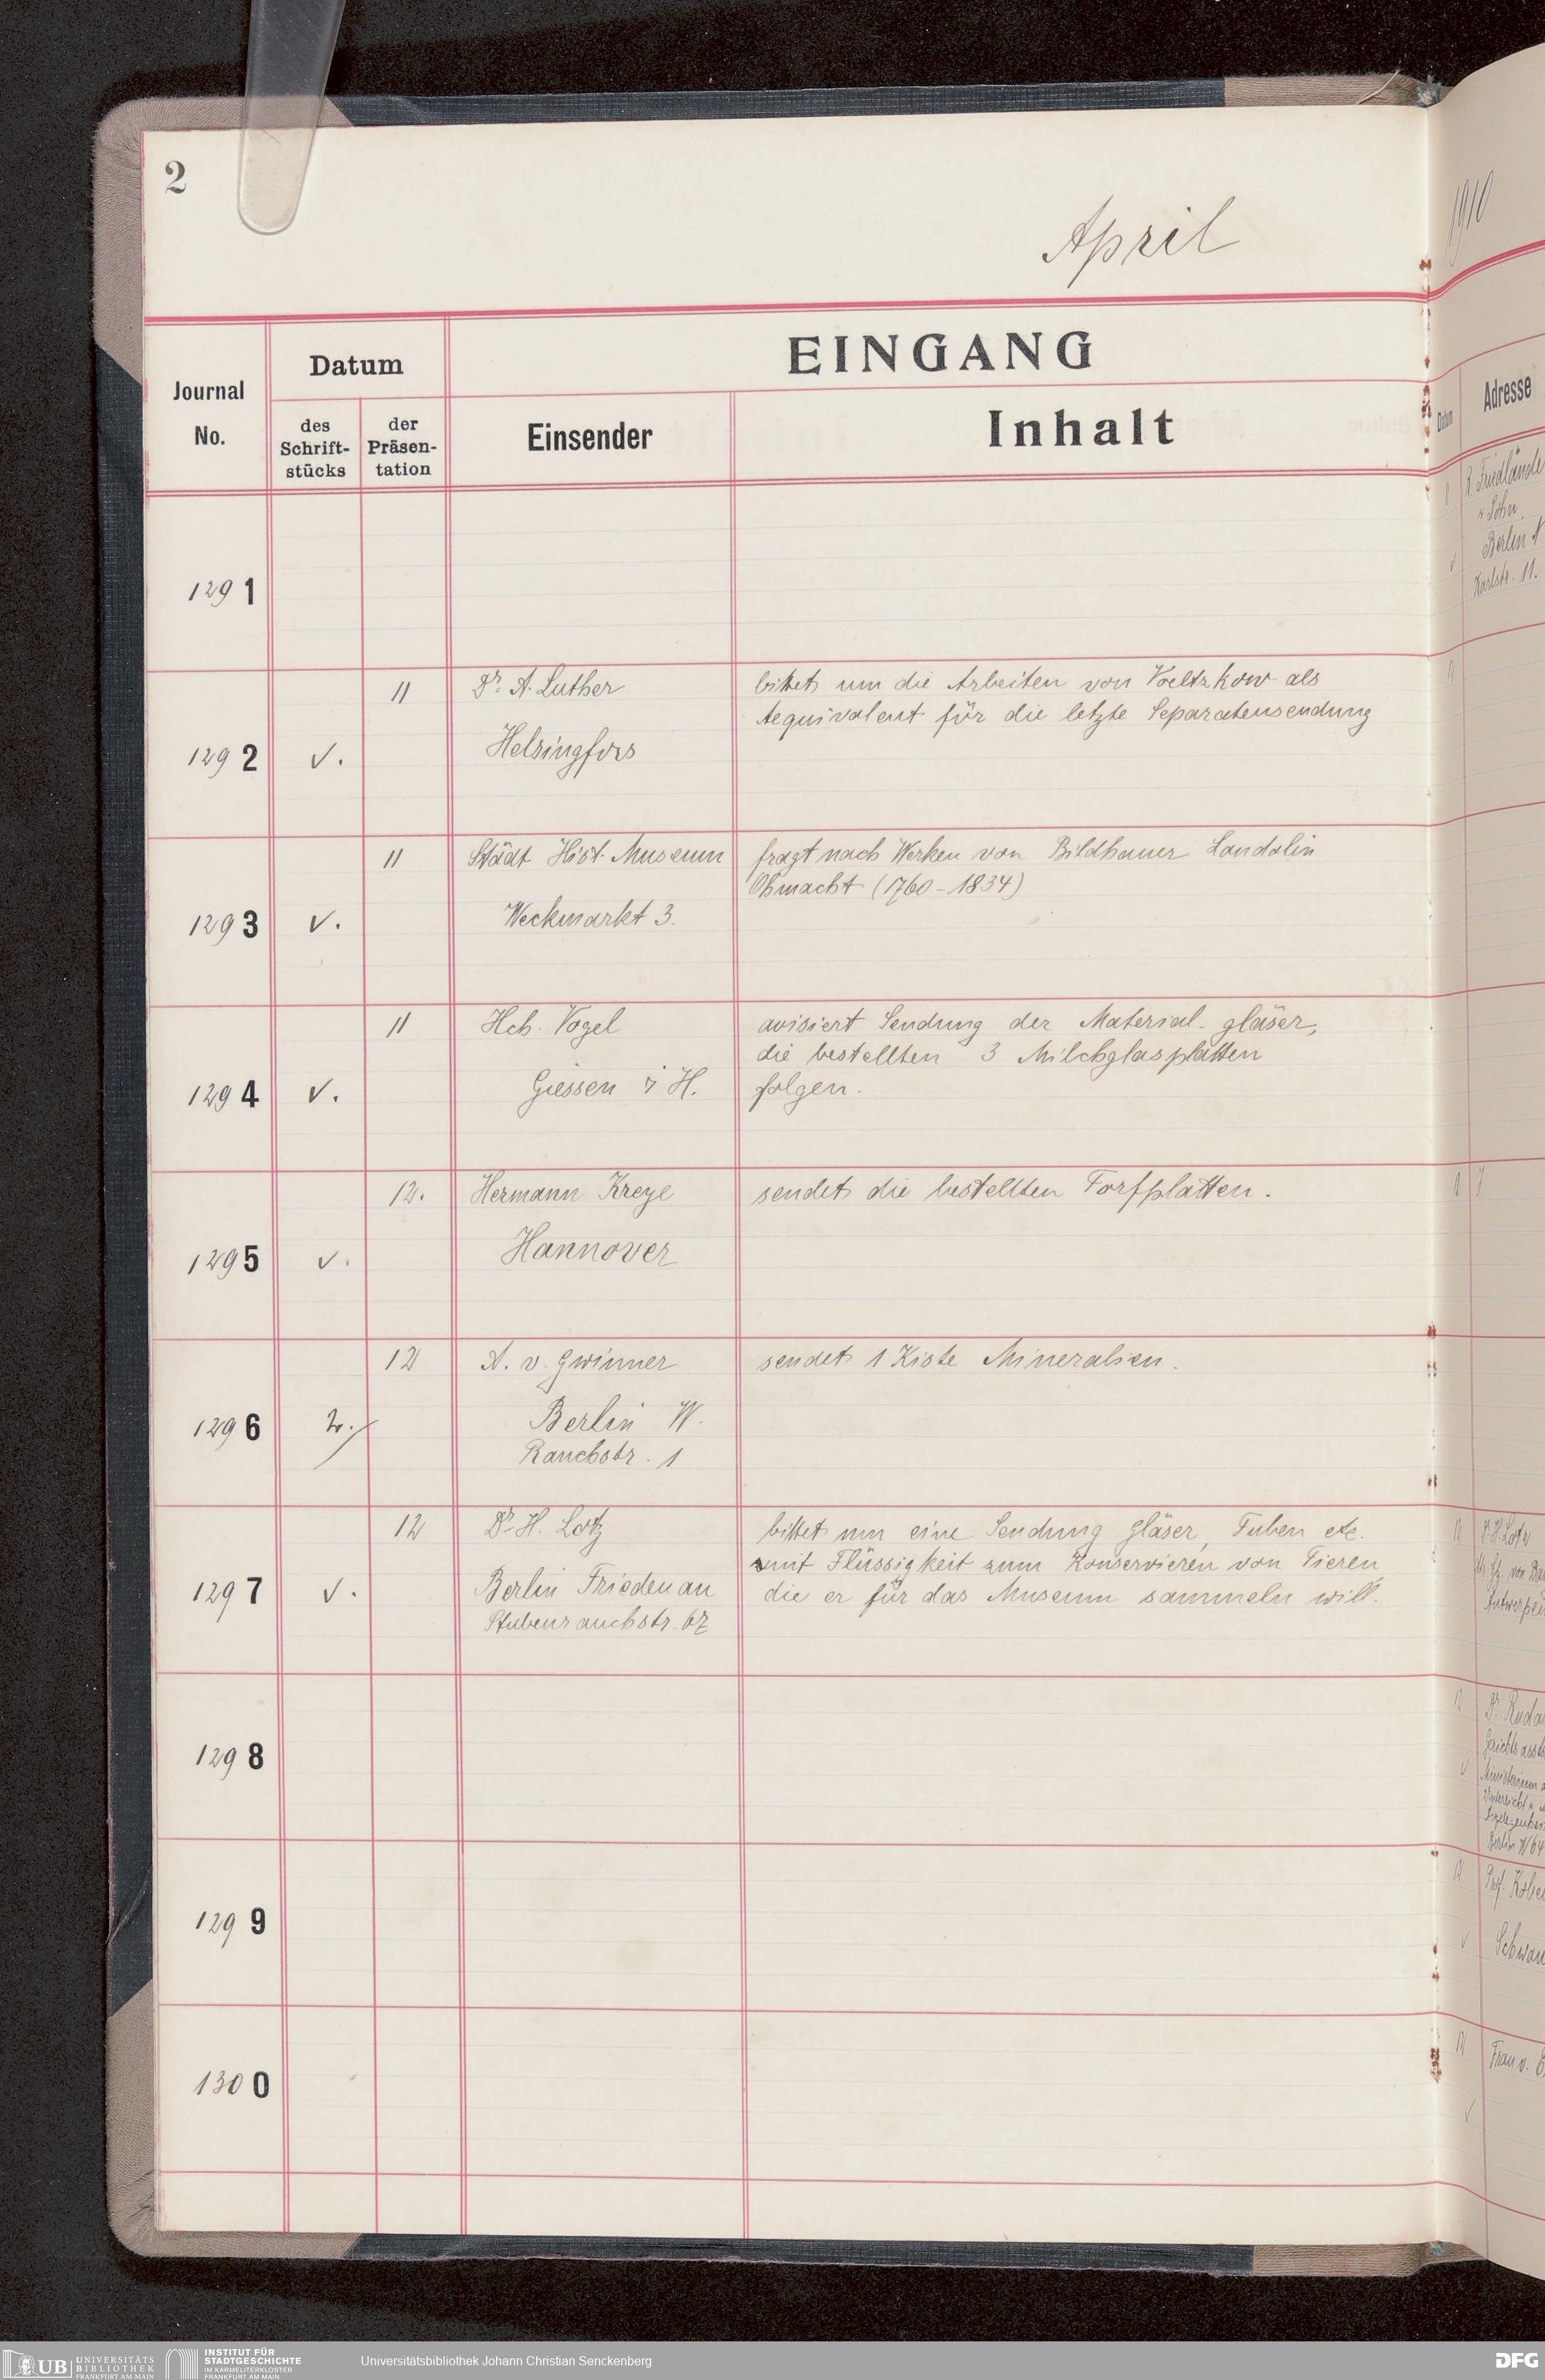 2
April
1910
Journal No.
Datum
des Schrift-stücks
der Präsen-tation
EINGANG
Einsender
Inhalt
Datum
Adresse
1291
R Friedlände
u Sohn
Berlin N
Karlstr. 11.
1292
✓.
11
Dr. A. Luther
Helsingfors
bittet um die Arbeiten von Voeltzkow als
Aequivalent für die letzte Separatensendung
1293
✓.
11
Städt Hist. Museum
Weckmarkt 3.
fragt nach Werken von Bildhauer Landolin
Ohmacht (1760-1834)
1294
✓.
11
Hch. Vogel
Giessen i H.
avisiert Sendung der Material-gläser,
die bestellten 3 Milchglasplatten
folgen.
1295
✓.
12.
Hermann Kreye
Hannover
sendet die bestellten Torfplatten.
1296
12
A. v. Gwinner
Berlin W.
Rauchstr. 1
sendet 1 Kiste Mineralien.
1297
✓.
12
Dr. H. Lotz
Berlin Friedenau
Stubenrauchstr. 67
bittet um eine Sendung Gläser, Tuben etc.
mit Flüssigkeit zum Konservieren von Tieren,
die er für das Museum sammeln will.
12
Dr. H. Lotz
Antwerpen
1298
12
1299
12
Prof. Kobe
Schwan
1300
12
Frau v.
UB UNIVERSITÄTS
BIBLIOTHEK
FRANKFURT AM MAIN
INSTITUT FÜR
STADTGESCHICHTE
IM KARMELITERKLOSTER
FRANKFURT AM MAIN
Universitätsbibliothek Johann Christian Senckenberg
DFG